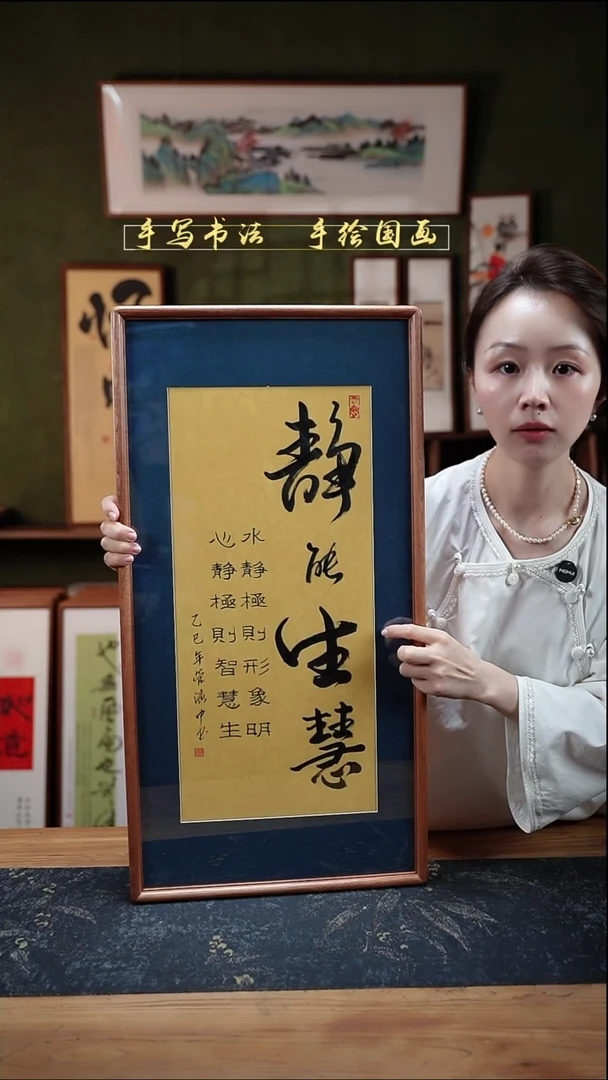 手写书法 手绘国画
静能生慧
水静極則形象明
心静極則智慧生
乙巳年